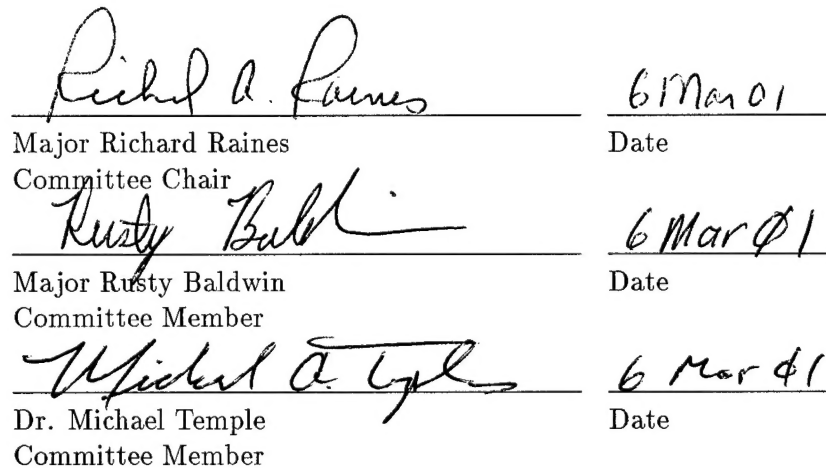 Richard A. Raines 6 Mar 01
Major Richard Raines Date
Committee Chair
Rusty Baldwin 6 Mar Ø1
Major Rusty Baldwin Date
Committee Member
Michael A. Temple 6 Mar Ø1
Dr. Michael Temple Date
Committee Member